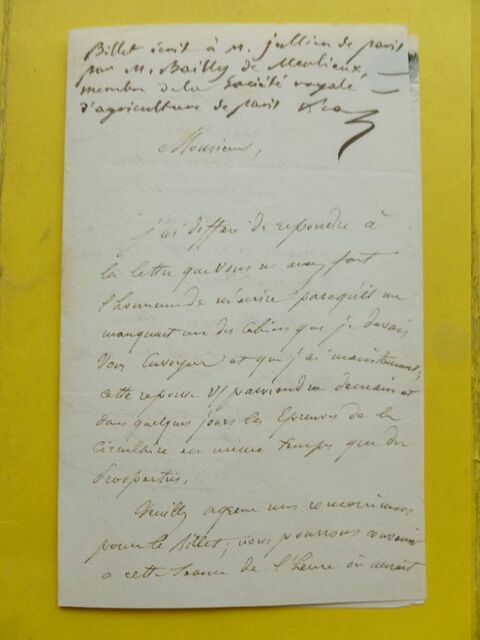 Billet écrit à M. jullien de paris
par M. Bailly de Merlieux,
membre de la Société royale
d'agriculture de paris
Monsieur,
j'ai différé de repondre à
la lettre que vous m'avez fait
l'honneur de m'écrire parcequ'il me
manquait un des cahiers que je devais
vous envoyer et que j'ai maintenant;
cette reponse v/ parviendra demain et
dans quelques jours les Epreuves de la
Circulaire en même temps que du
Prospectus.
Veuillez agréer mes
pour le billet; nous pourrons convenir
a cette de l'heure où auront